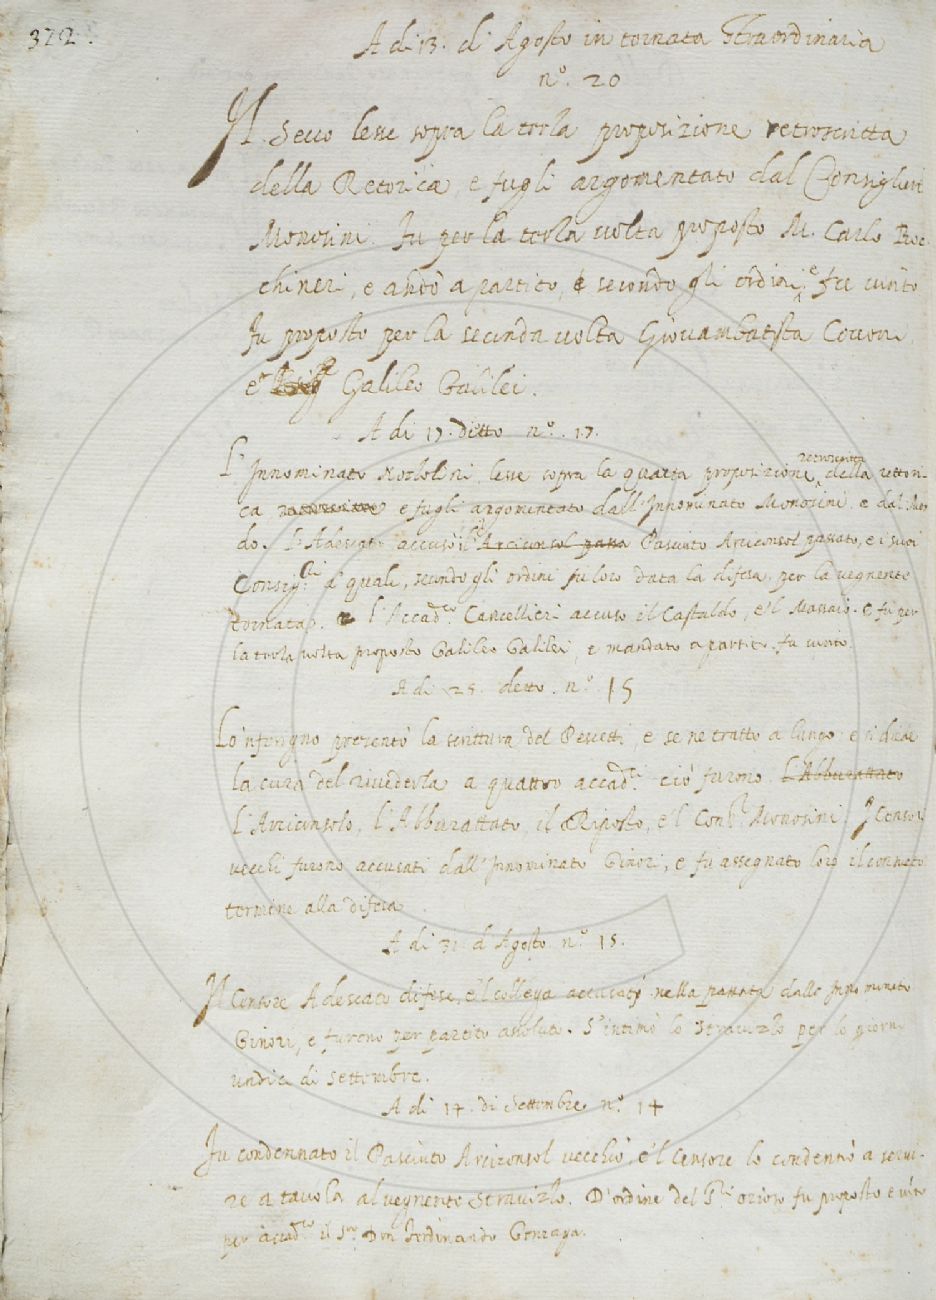 322.
A dì 13. d'Agosto in tornata Straordinaria
n.º 20
Il Secco lesse sopra la terza proposizione retroscritta
della Retorica, e fugli argomentato dal Consiglier
Monosini. Fu per la terza volta proposto M. Carlo Boc-
chineri, e andò a partito, e secondo gli ordini e fu vinto
Fu proposto per la seconda volta Giovambatista Covoni
e Galileo Galilei.
A dì 17. ditto n.º 17.
L'Innominato Nozzolini lesse sopra la quarta proposizione retroscritta della rettori-
ca retroscritta e fugli argomentato dall'Innominato Monosini e dal
do. L'Adescato accusò il Arciconsol passa Pasciuto Arciconsol passato, e i suoi
Consig.ri a' quali, secondo gli ordini fu loro data la difesa per la vegnente
Tornata. e l'Accad.co Cancellieri accusò il Castaldo, e 'l Massaio. e fu per
la terza volta proposto Galileo Galilei, e mandato a partito fu vinto.
A dì 25. detto. n.º 15
Lo 'nferigno presentò la scrittura del Pescetti, e se ne trattò a lungo e si diede
la cura del rivederla a quattro accad.ci ciò furono l'Abburattato
l'Arciconsolo, l'Abburattato, il Riposto, e 'l Cons.re Monosini. I Censori
vecchi furono accusati dall'Innominato Ginori, e fu assegnato loro il consueto
termine alla difesa
A dì 31 d'Agosto n.º 15.
Il Censore Adescato difese, e 'l collega accusati nella passata dallo Innominato
Ginori, e furono per partito assoluti. S'intimò lo Stravizzo per lo giorno
undici di Settembre.
A dì 14. di Settembre n.º 14
Fu condennato il Pasciuto Arciconsol vecchio, e 'l Censore lo condennò a servi-
re a tavola al vegnente Stravizzo. D'ordine del fu proposto e vinto
per accad.co il S.or Don Ferdinando Gonzaga.